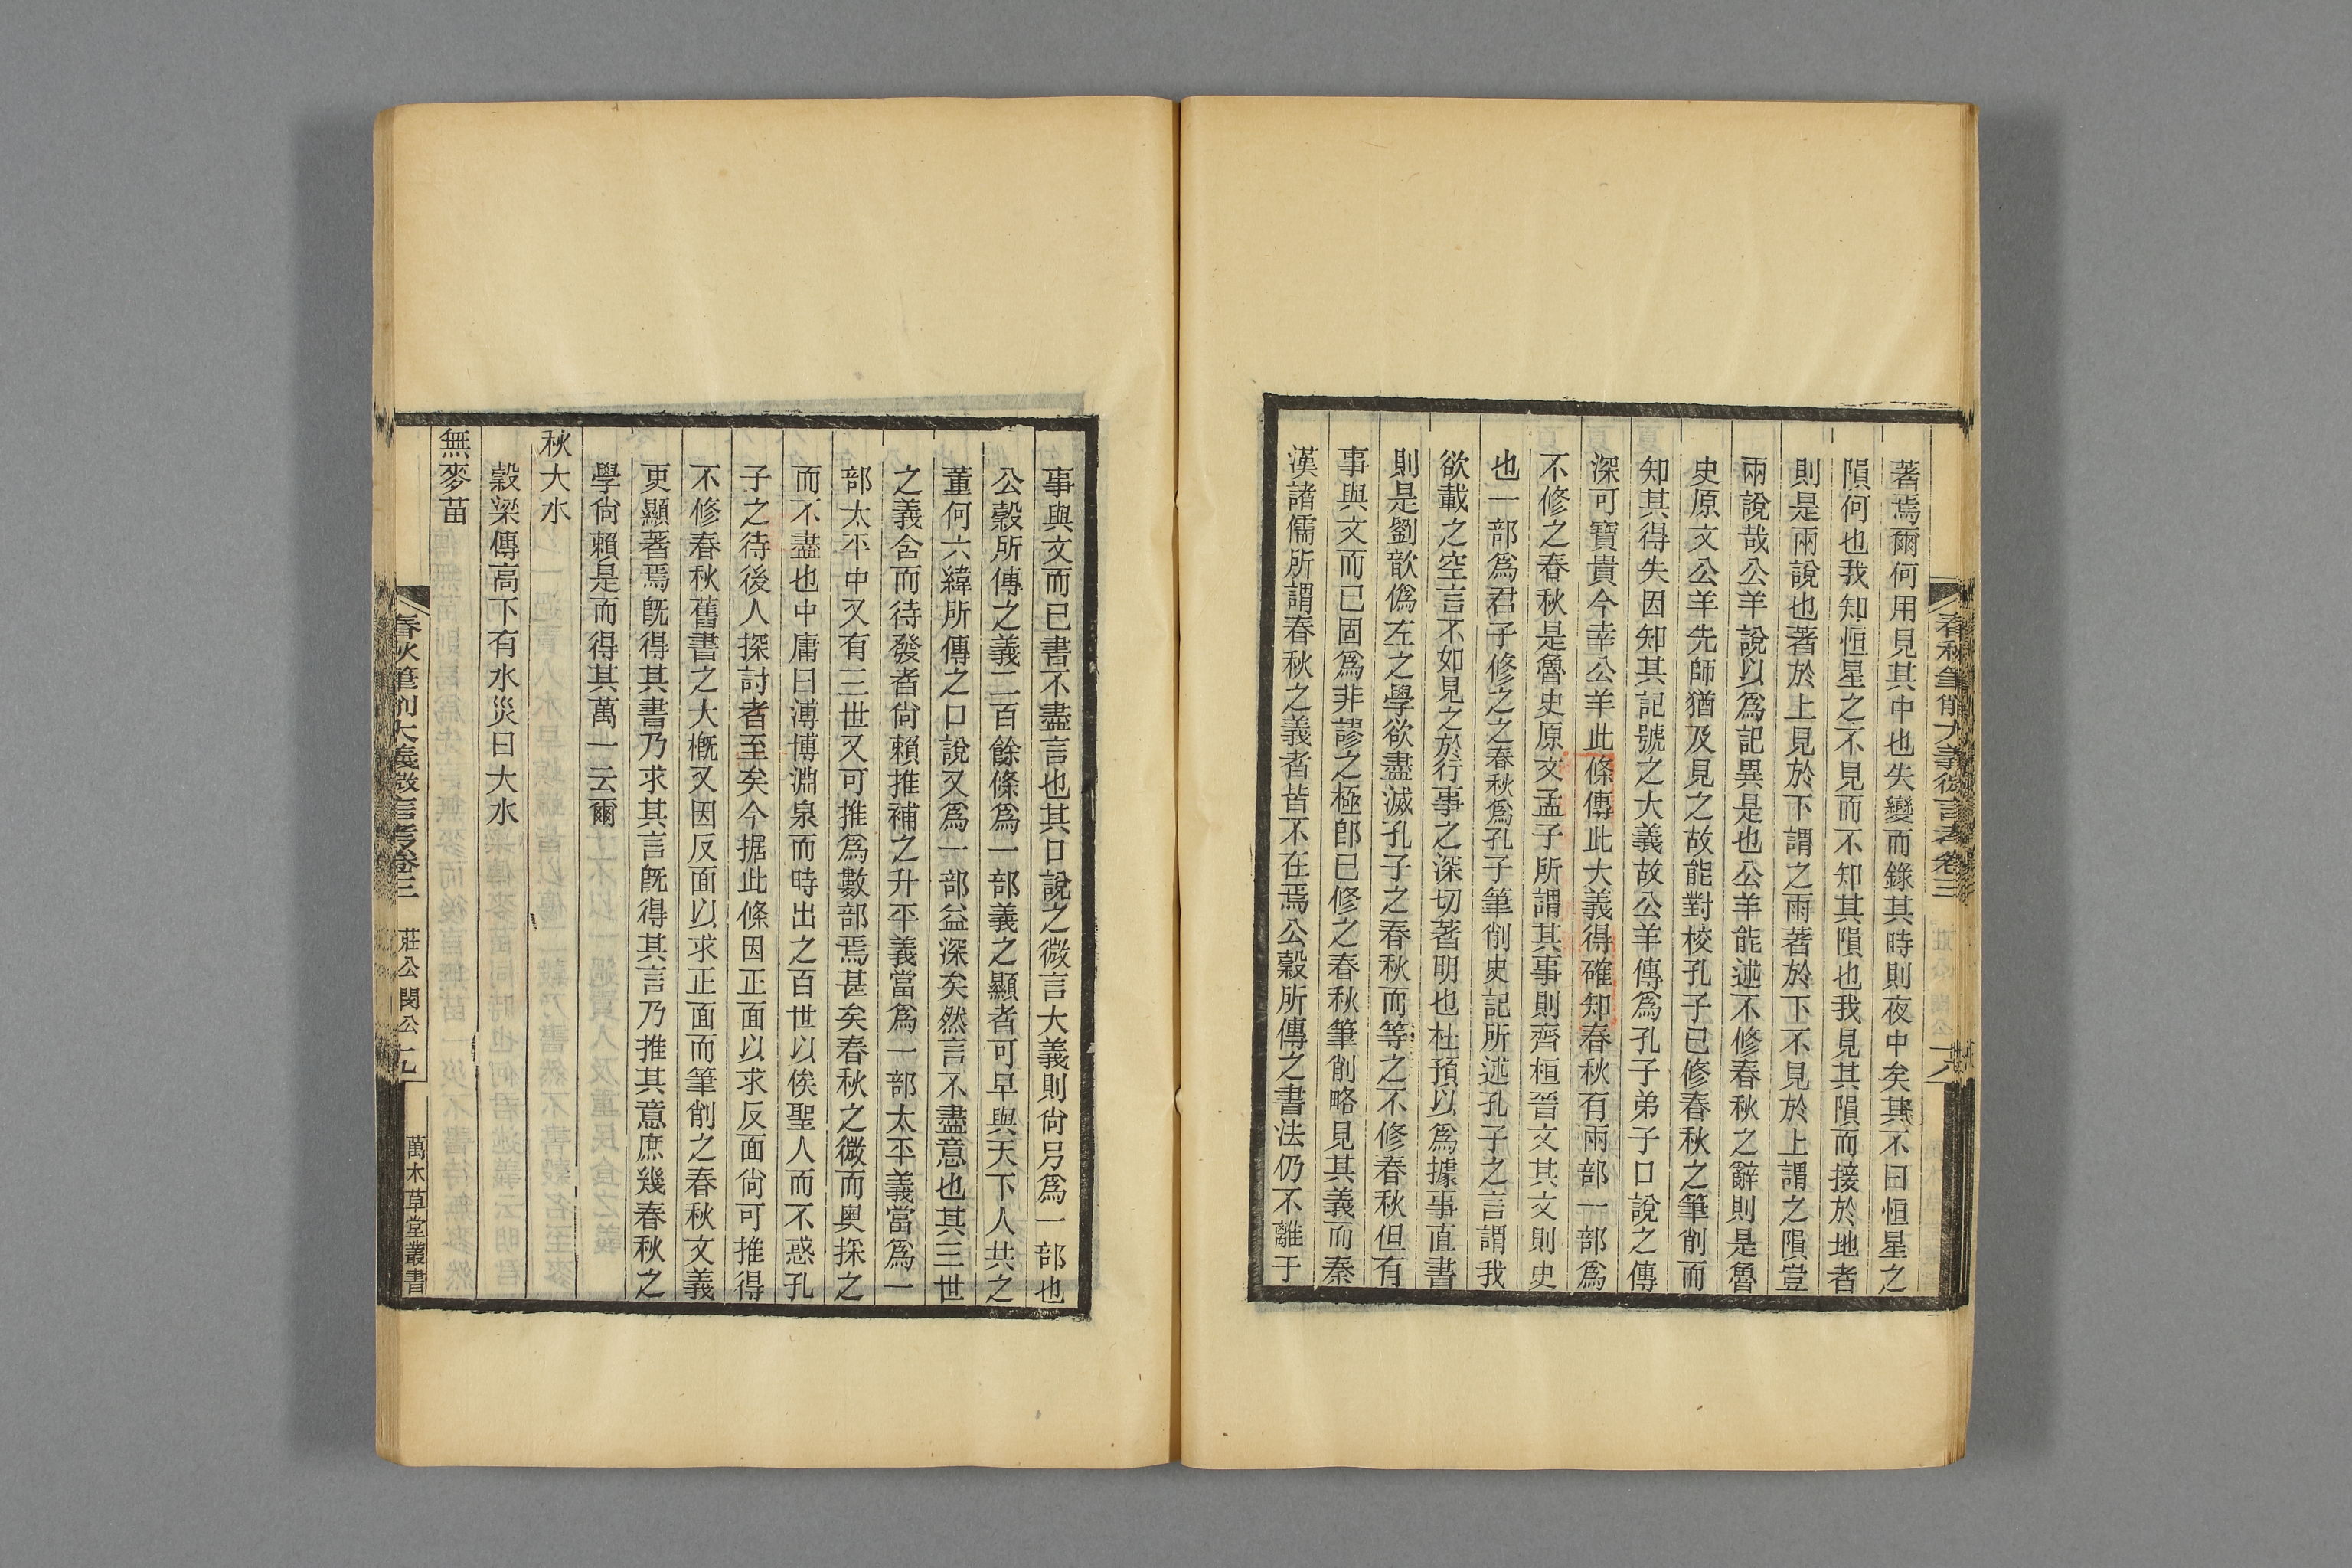 著焉爾何用見其中也失變而錄其時則夜中矣其不曰恒星之
隕何也我知恒星之不見而不知其隕也我見其隕而接於地者
則是雨說也著於上見於下謂之雨著於下不見於上謂之隕豈
雨說哉公羊說以爲記異是也公羊能述不修春秋之辭則是魯
史原文公羊先師猶及見之故能對校孔子已修春秋之筆削而
知其得失因知其記號之大義故公羊傳爲孔子弟子口說之傳
深可寶貴今幸公羊此條傳此大義得確知春秋有兩部一部爲
不修之春秋是魯史原文孟子所謂其事則齊桓晉文其文則史
也一部爲君子修之之春秋爲孔子筆削史記所述孔子之言謂我
欲載之空言不如見之於行事之深切著明也杜預以爲據事直書
則是劉歆僞左之學欲盡滅孔子之春秋而等之不修春秋但有
事與文而已固爲非謬之極卽已修之春秋筆削略見其義而秦
漢諸儒所謂春秋之義者皆不在焉公穀所傳之書法仍不離于
春秋筆削大義微言考卷三
十八
事與文而已書不盡言也其口說之微言大義則尙另爲一部也
公穀所傳之義二百餘條爲一部義之顯者可早與天下人共之
董何六緯所傳之口說又爲一部益深矣然言不盡意也其三世
之義含而待發者尙賴推補之升平義當爲一部太平義當爲一
部太平中又有三世又可推爲數部焉甚矣春秋之微而奧探之
而不盡也中庸曰溥博淵泉而時出之百世以俟聖人而不惑孔
子之待後人探討者至矣今据此條因正面以求反面尙可推得
不修春秋舊書之大概又因反面以求正面而筆削之春秋文義
更顯著焉旣得其書乃求其言旣得其言乃推其意庶幾春秋之
學尙賴是而得其萬一云爾
秋大水
穀梁傳高下有水災曰大水
無麥苗
春秋筆削大義微言考卷三
莊公閔公
十九
萬木草堂叢書